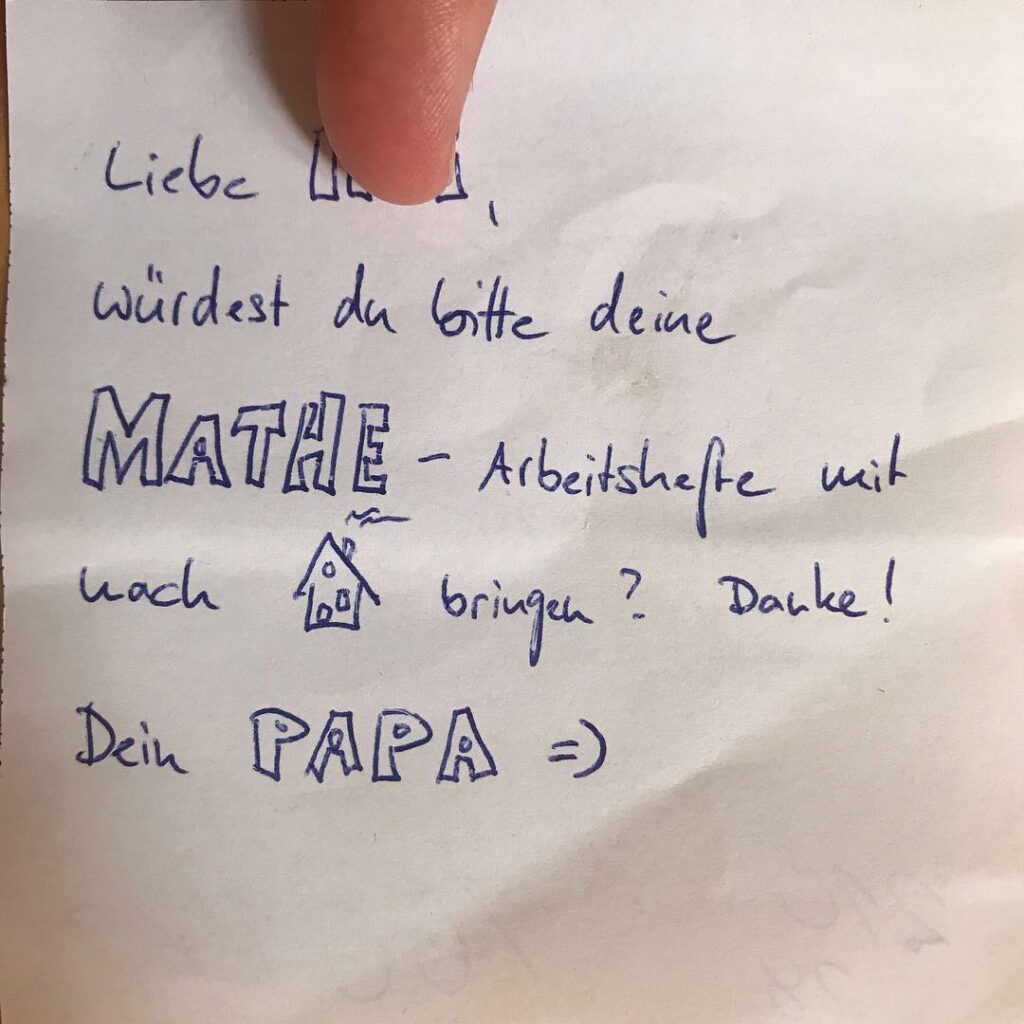 Liebe ,
würdest du bitte deine
MATHE - Arbeitshefte mit
nach bringen? Danke!
Dein PAPA =)